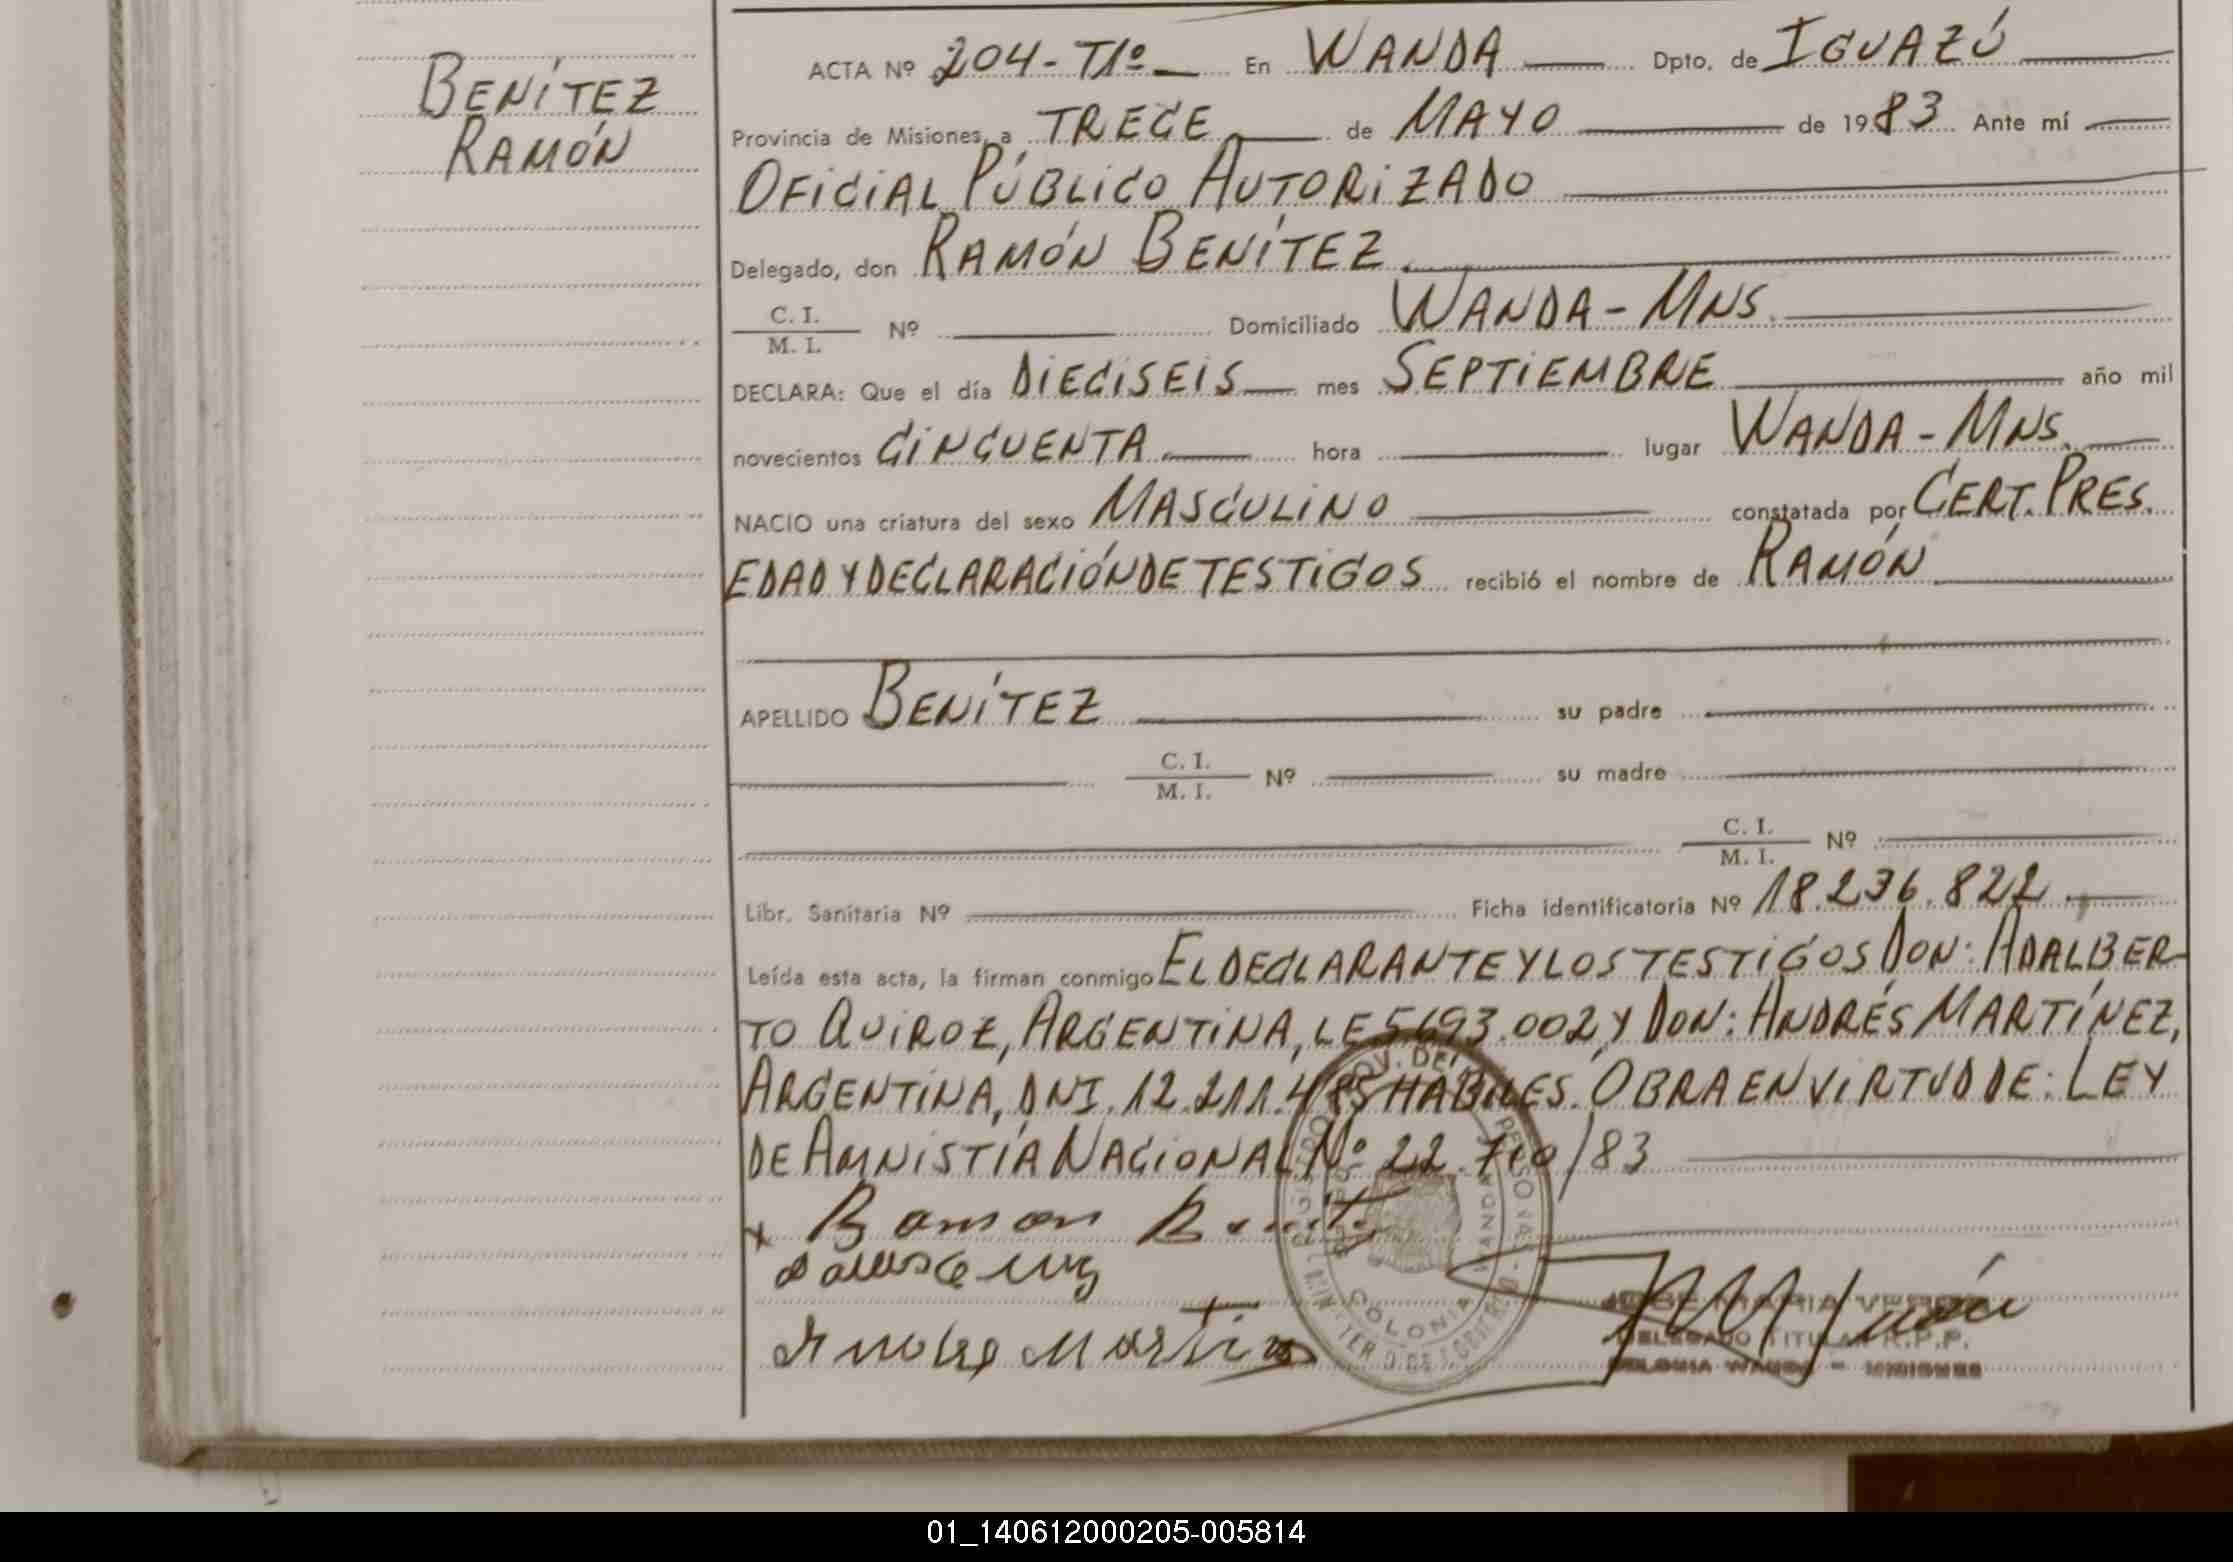 BENÍTEZ
RAMÓN
ACTA Nº 204-T1º En WANDA Dpto. de IGUAZÚ
Provincia de Misiones, a TRECE de MAYO de 1983 Ante mí
OFICIAL PÚBLICO AUTORIZADO
Delegado, don RAMÓN BENÍTEZ
C. I.
M. I. Nº Domiciliado WANDA-MNS.
DECLARA: Que el día DIECISEIS mes SEPTIEMBRE año mil
novecientos CINCUENTA hora lugar WANDA-MNS.
NACIO una criatura del sexo MASCULINO constatada por CERT. PRES.
EDAD Y DECLARACIÓN DE TESTIGOS recibió el nombre de RAMÓN
APELLIDO BENÍTEZ su padre
C. I.
M. I. Nº su madre
C. I.
M. I. Nº
Libr. Sanitaria Nº Ficha identificatoria Nº 18.236.822
Leída esta acta, la firman conmigo EL DECLARANTE Y LOS TESTIGOS DON: ADALBER-
TO QUIROZ, ARGENTINA, LE 5693.002, Y DON: ANDRÉS MARTÍNEZ,
ARGENTINA, DNI. 12.211.485 HABILES. OBRA EN VIRTUD DE: LEY
DE AMNISTÍA NACIONAL Nº 22.710/83
x Ramon Benitez
COLONIA WANDA
JOSE MARIA
DELEGADO TITULAR R.P.P.
COLONIA WANDA - MISIONES
01_140612000205-005814